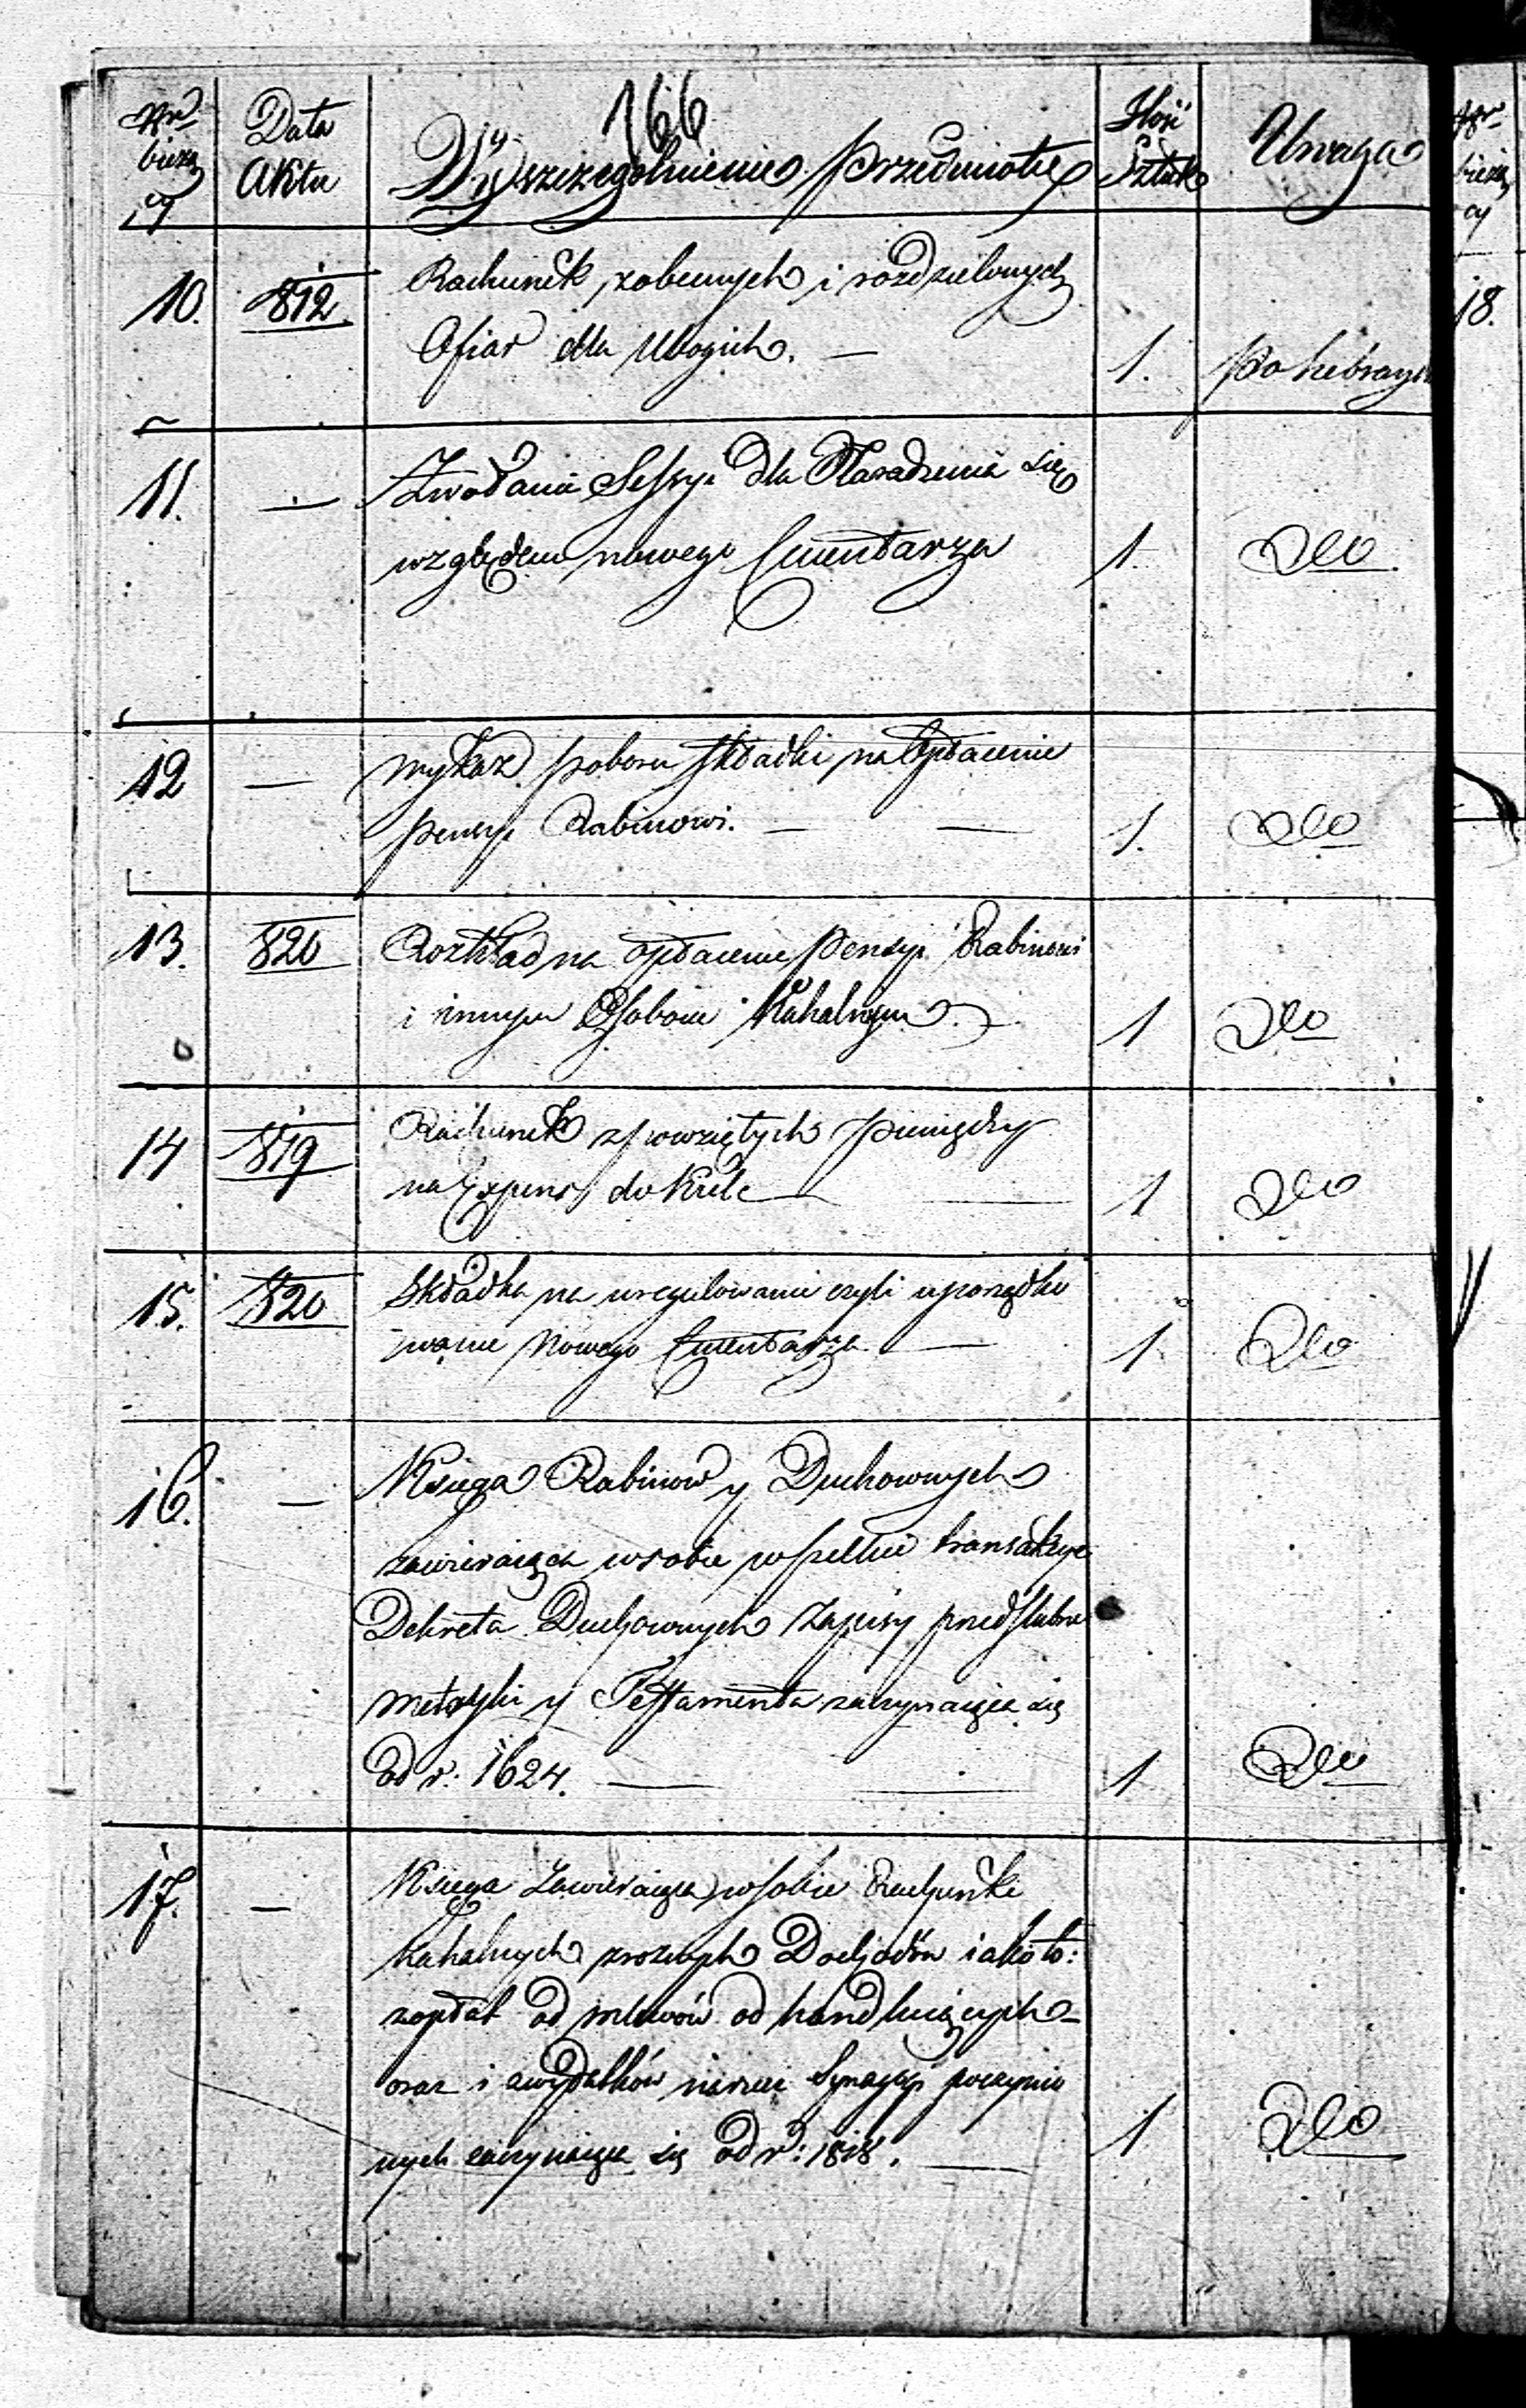 166
Nr bieżący
Data Aktu
Wyszczególnienie przedmiotu
Ilość Sztuk
Uwaga
10.
812.
Rachunek zebranych i rozdzielonych
Ofiar dla Ubogich. —
1.
Po hebrays
11.
—
Zwołanie Sessyi dla Naradzenia się
względem nowego Cmentarza
1.
Dto
12
—
Wykaz poboru składki na Opłacenie
pensyi Rabinowi. — —
1.
Dto
13.
820
Rozkład na opłacenie Pensyi Rabinowi
i innym Osobom Kahalnym
1
Dto
14
819
Rachunek z powziętych pieniędzy
na Expens do Kielc —
1
Dto
15.
820
Składka na uregulowanie czyli uporządko
wanie Nowego Cmentarza —
1
Dto
16.
—
Księga Rabinow y Duchownych
zawieraiąca w sobie wszelkie transakcye
Dekreta Duchownych Zapisy przedślubne
metryki y Testamenta zaczynaiąca się
od r: 1624. —
1
Dto
17.
—
Księga zawieraiąca w sobie Rachunki
Kahalnych z roznych Dochodów iako to:
zopłat od mlewów od handluiących
oraz i wydatków na rzecz Synagogi poczynio
nych zaczynaiąca się od r: 1818. —
1
Dto
18.